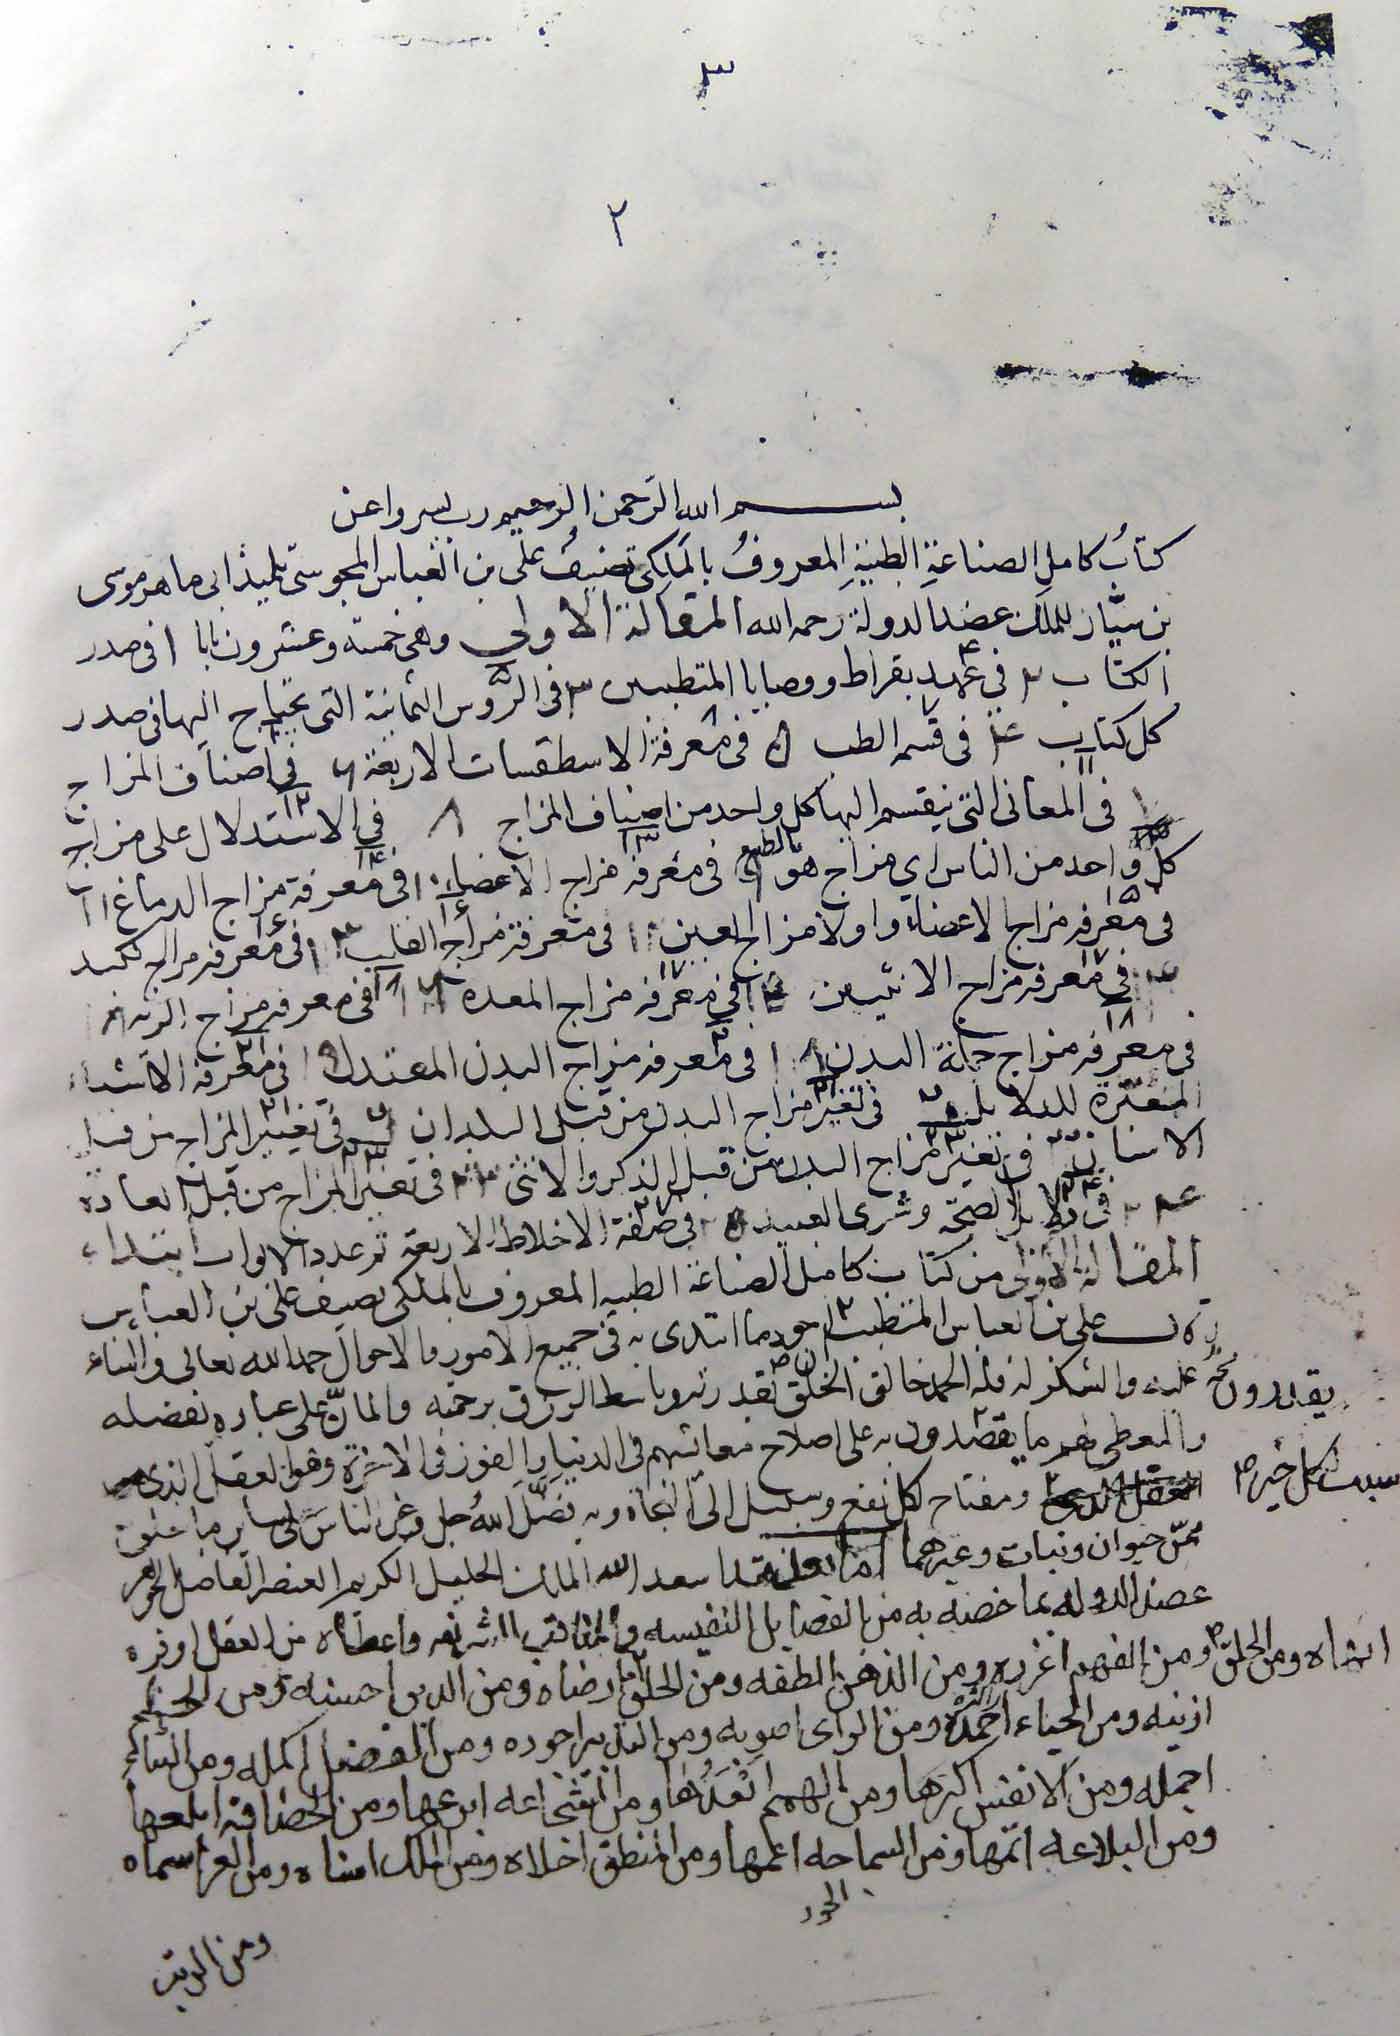 ٣
٢
بسم الله الرحمن الرحيم رب يسر واعن
كتاب كامل الصناعة الطبية المعروف بالملكي تصنيف علي بن العباس المجوسي تلميذ ابي ماهر موسى
بن سيار للملك عضد الدولة رحمه الله المقالة الاولى وهي خمسة وعشرون بابا ا في صدر
الكتاب ٢ في عهد بقراط ووصايا المتطببين ٣ في الرؤس الثمانية التي يحتاج اليها في صدر
كل كتاب ٤ في قسم الطب ٥ في معرفة الاسطقسات الاربعة ٦ في اصناف المزاج
في المعاني التي ينقسم اليها كل واحد من اصناف المزاج ٨ في الاستدلال على مزاج
كل واحد من الناس اي مزاج هو بالطبع في معرفة مزاج الاعضاء في معرفة مزاج الدماغ
في معرفه مزاج الاعضاء واولا مزاج العين في معرفة مزاج القلب في معرفه مزاج الكبد
في معرفه مزاج الانثيين في معرفه مزاج المعده في معرفه مزاج الريه
في معرفه مزاج جملة البدن في معرفه مزاج البدن المعتدل في معرفة الاشياء
المغيرة للدلايل في تغير مزاج البدن من قبل البلدان في تغيير المزاج من قبل
الاسنان في تغير مزاج البدن من قبل الذكر والانثى في تغير المزاج من قبل العادة
في دلايل الصحة وشرى العبيد في صفة الاخلاط الاربعة تم عدد الابواب ابتداء
المقالة الاولى من كتاب كامل الصناعة الطبيه المعروف بالملكي تصنيف علي بن العباس
علي بن العباس المتطبب اجود ما ابتدى به في جميع الامور والاحوال حمد الله تعالى والثناء
عليه والشكر له فلله الحمد خالق الخلق بقدرته وباسط الرزق برحمته والمان على عباده بفضله
يقدرون
والمعطي لهم ما يقصدون به على اصلاح معاشهم في الدنيا والفوز في الاخرة وهو العقل الذي
لكل خير
ومفتاح لكل نفع وسبيل الى النجاة وبه فضل الله جل وعز الناس على ساير ما خلق
من حيوان ونبات وغيرهما اسعد الله الملك الجليل الكريم العنصر الفاضل الجوهر
عضد الدوله بما خصه به من الفضايل النفيسه والمناقب الشريفه واعطاه من العقل اوفره
ومن الفهم اغزره ومن الذهن الطفه ومن الخلق ارضاه ومن الدين احسنه ومن
ازينه ومن الحياء ومن الراى اصوبه ومن التدبير اجوده ومن الفضل اكمله ومن الثناء
اجمله ومن الانفس اكبرها ومن الهمم ابعدها ومن الشجاعه ومن ابلغها
ومن البلاغه اتمها ومن السماحه اعمها ومن المنطق احلاه ومن الملك ومن العز اسماه
الجود